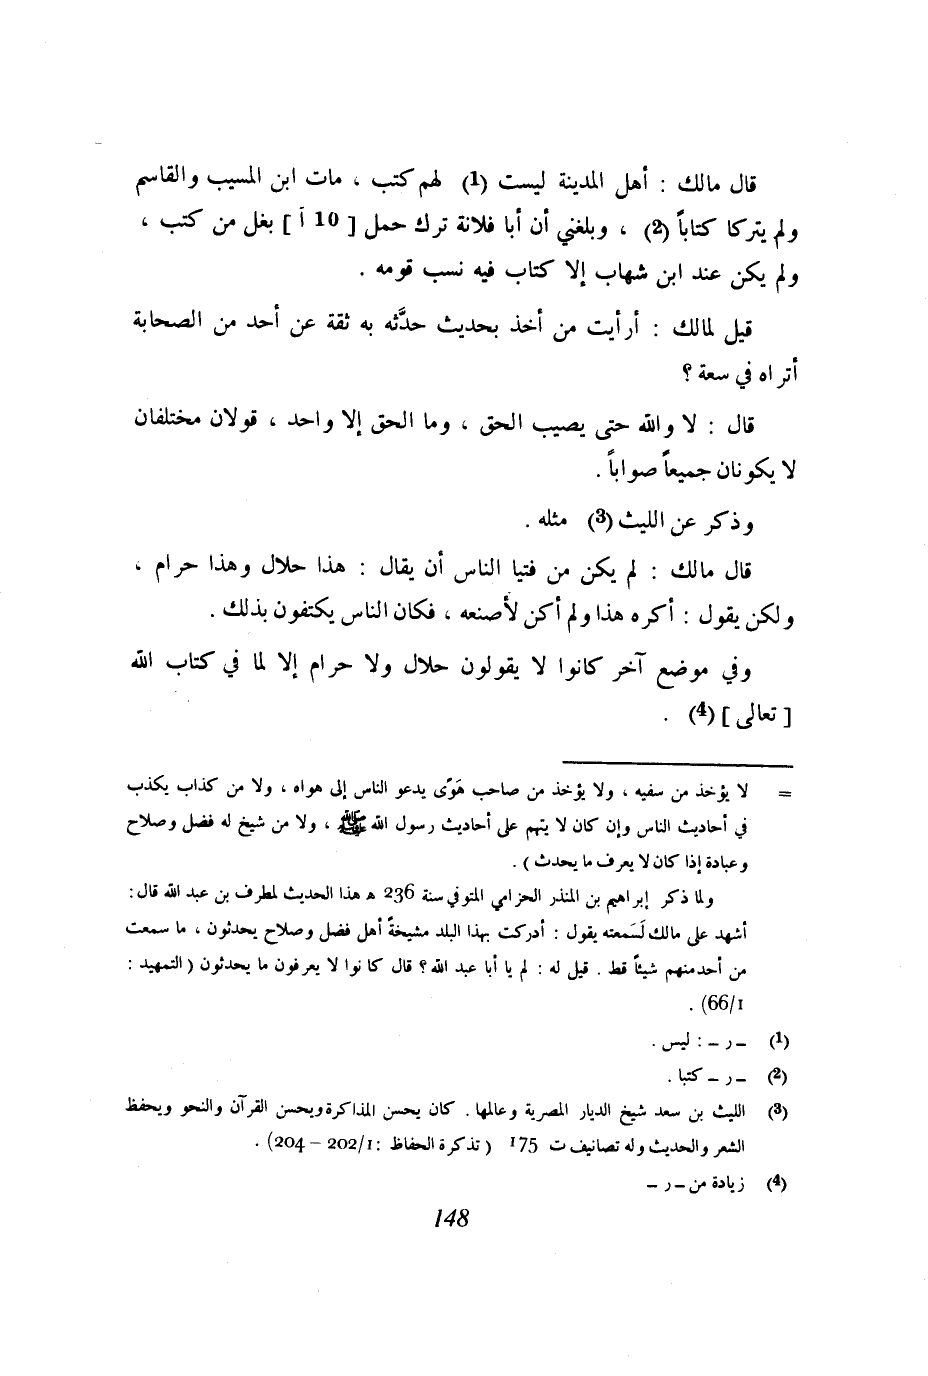 قال مالك : أهل المدينة ليست (1) لهم كتب ، مات ابن المسيب والقاسم
ولم يتركا كتاباً (2) ، وبلغني أن أبا فلانة ترك حمل [ 10 أ ] بغل من كتب ،
ولم يكن عند ابن شهاب إلا كتاب فيه نسب قومه .
قيل لمالك : أرأيت من أخذ بحديث حدَّثه به ثقة عن أحد من الصحابة
أتراه في سعة ؟
قال : لا والله حتى يصيب الحق ، وما الحق إلا واحد ، قولان مختلفان
لا يكونان جميعاً صواباً .
وذكر عن الليث (3) مثله .
قال مالك : لم يكن من فتيا الناس أن يقال : هذا حلال وهذا حرام ،
ولكن يقول : أكره هذا ولم أكن لأصنعه ، فكان الناس يكتفون بذلك .
وفي موضع آخر كانوا لا يقولون حلال ولا حرام إلا لما في كتاب الله
[ تعالى ] (4) .
= لا يؤخذ من سفيه ، ولا يؤخذ من صاحب هَوًى يدعو الناس إلى هواه ، ولا من كذاب يكذب
في أحاديث الناس وإن كان لا يتهم على أحاديث رسول الله ﷺ ، ولا من شيخ له فضل وصلاح
وعبادة إذا كان لا يعرف ما يحدث ) .
ولما ذكر إبراهيم بن المنذر الحزامي المتوفي سنة 236 ه هذا الحديث لمطرف بن عبد الله قال :
أشهد على مالك لَسَمعته يقول : أدركت بهذا البلد مشيخةً أهل فضل وصلاح يحدثون ، ما سمعت
من أحد منهم شيئاً قط . قيل له : لم يا أبا عبد الله ؟ قال كانوا لا يعرفون ما يحدثون ( التمهيد :
66/1) .
(1) – ر – : ليس .
(2) – ر – كتبا .
(3) الليث بن سعد شيخ الديار المصرية وعالمها . كان يحسن المذاكرة ويحسن القرآن والنحو ويحفظ
الشعر والحديث وله تصانيف ت 175 ( تذكرة الحفاظ : 202/1 – 204) .
(4) زيادة من – ر –
148